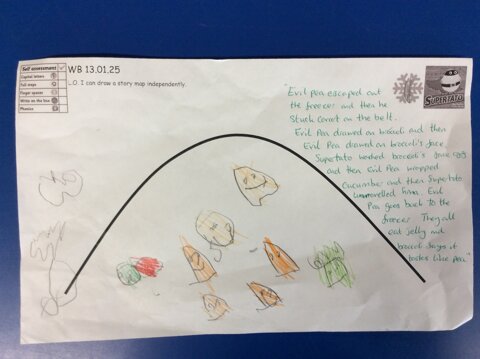 Self assessment
Capital letters
Full stops
Finger spaces
Write on the line
Phonics
WB 13.01.25
L.O. I can draw a story map independently.
SUPERTATO
"Evil pea escaped out
the freezer and then he
stuck carrot on the belt.
Evil Pea drawed on broccoli and then
Evil Pea drawed on broccoli's face.
Supertato washed broccoli's face off
and then Evil Pea wrapped
cucumber and then Supertato
unravelled him. Evil
Pea goes back to the
freezer. They all
eat jelly and
broccoli says it
tastes like Pea."